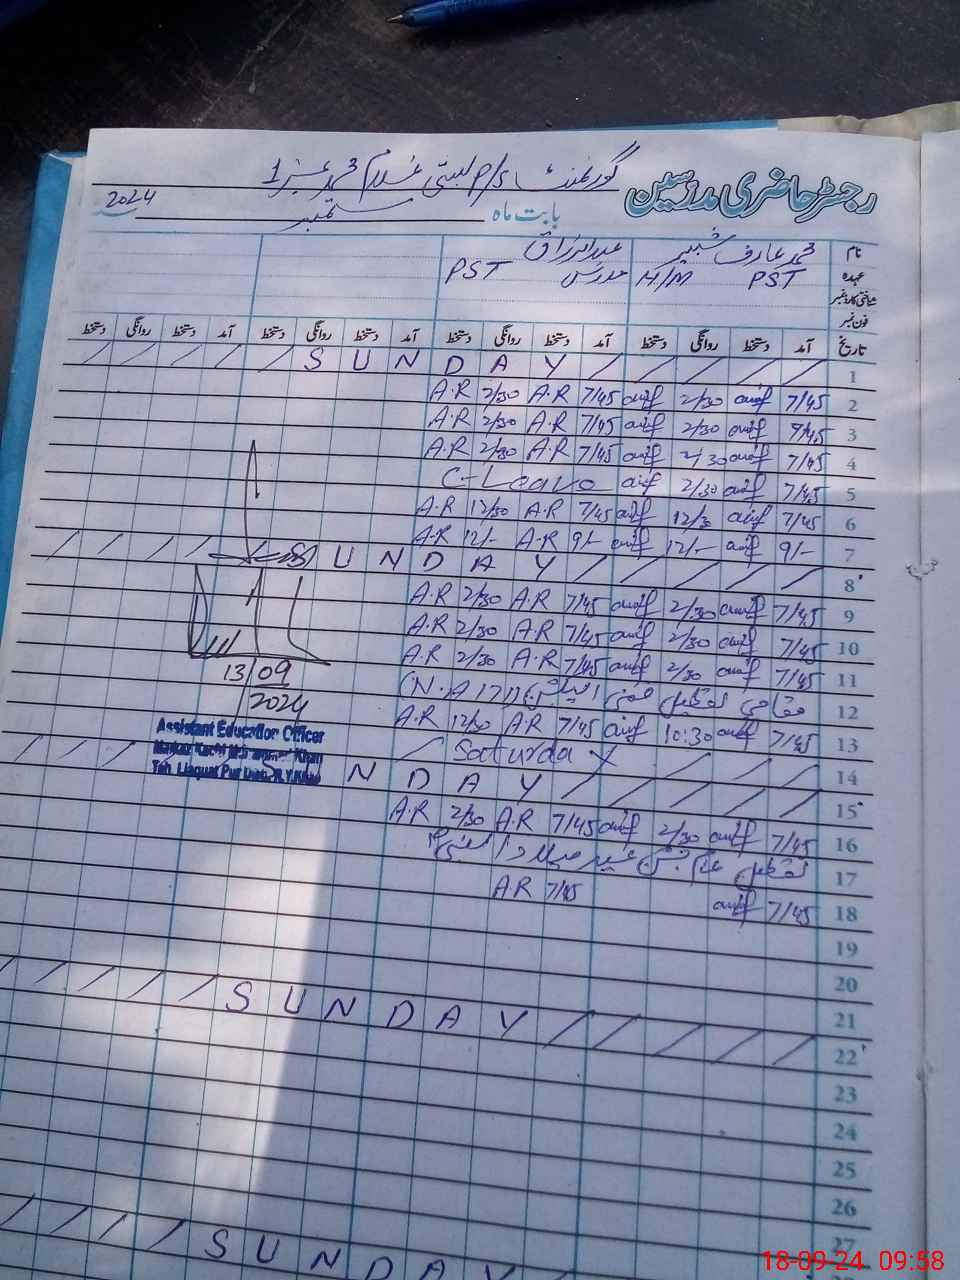 رجسٹر حاضری مدرسین
گورنمنٹ P/S بستی غلام محمد نمبر 1
بابت ماہ ستمبر سنہ 2024
نام محمد عارف شبیر عبدالرزاق
عہدہ PST H/M مدرس PST
شناختی کارڈ نمبر
فون نمبر
تاریخ آمد دستخط روانگی دستخط آمد دستخط روانگی دستخط آمد دستخط روانگی دستخط آمد دستخط روانگی دستخط
1 SUNDAY
2 7/45 عارف 2/30 عارف 7/45 A.R 2/30 A.R
3 7/45 عارف 2/30 عارف 7/45 A.R 2/30 A.R
4 7/45 عارف 2/30 عارف 7/45 A.R 2/30 A.R
5 7/45 عارف 2/30 عارف C-Leave
6 7/45 عارف 12/30 عارف 7/45 A.R 12/30 A.R
7 9/- عارف 12/- عارف 9/- A.R 12/- A.R
8 SUNDAY
9 7/45 عارف 2/30 عارف 7/45 A.R 2/30 A.R
10 7/45 عارف 2/30 عارف 7/45 A.R 2/30 A.R
11 7/45 عارف 2/30 عارف 7/45 A.R 2/30 A.R
12 مقامی تعطیل ضمنی الیکشن (N.A 171)
13 7/45 عارف 10:30 عارف 7/45 AR 12/30 A.R
14 Saturday
15 SUNDAY
16 7/45 عارف 2/30 عارف 7/45 A.R 2/30 A.R
17 تعطیل عام جشن عید میلاد النبی
18 7/45 عارف 7/45 A.R
19
20
21
22 SUNDAY
23
24
25
26
27
SUNDAY
13/09/2024
Assistant Education Officer
Markaz Kachi Muhammad Khan
Teh. Liaquat Pur Distt. R.Y.Khan
18-09-24 09:58